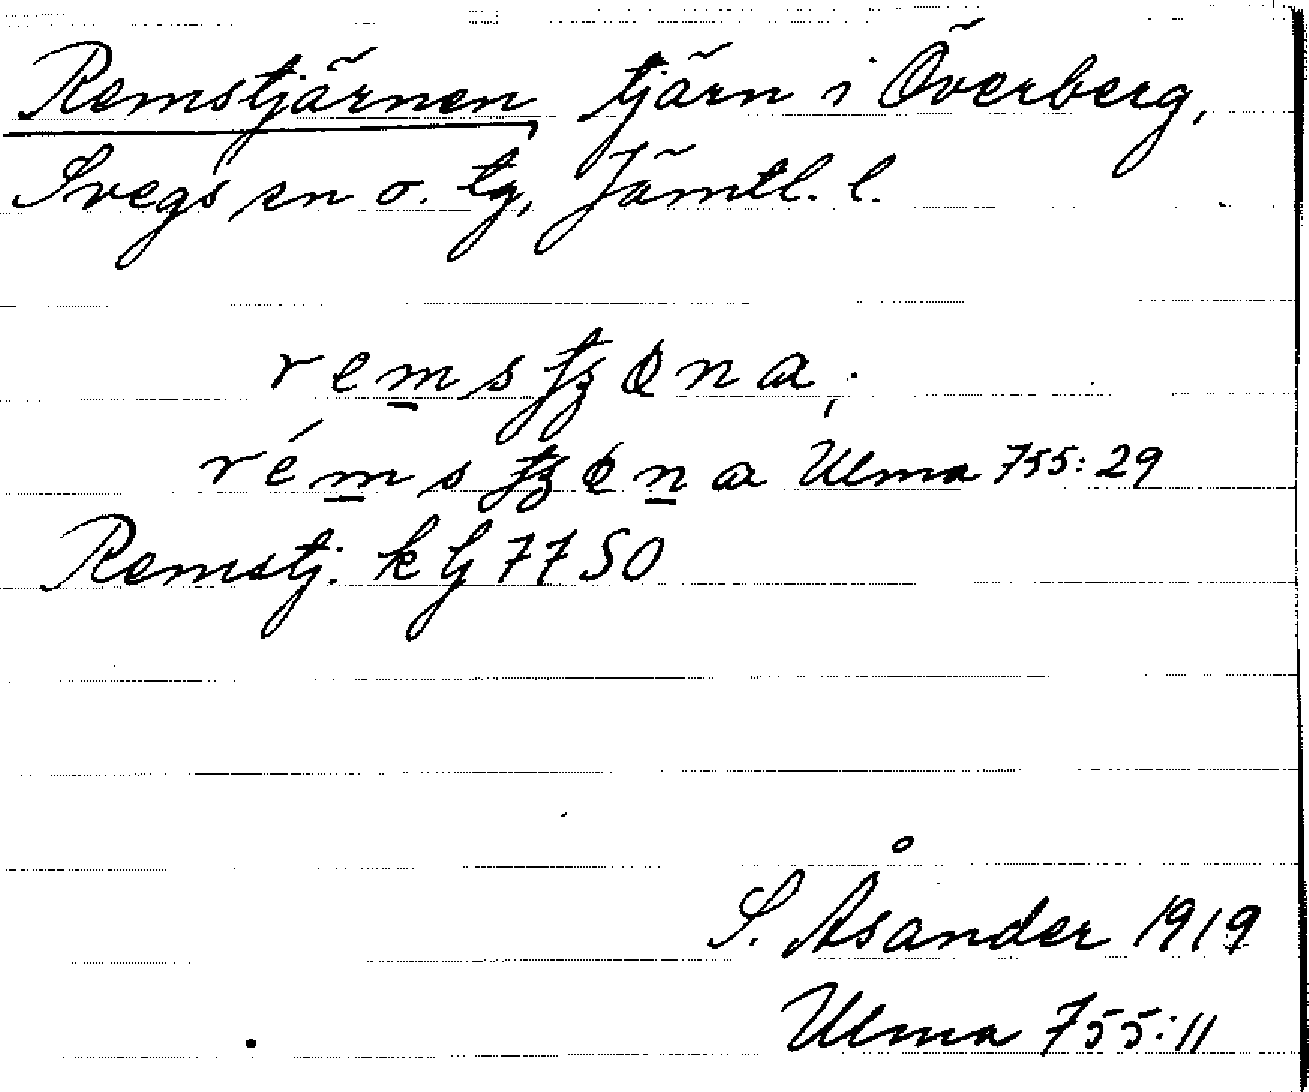 Remstjärnen, tjärn i Överberg,
Svegs sn o. tg, Jämtl. l.
Ulma 755:29
Remstj. k lj 7750
S. Åsander 1919
Ulma 755:11